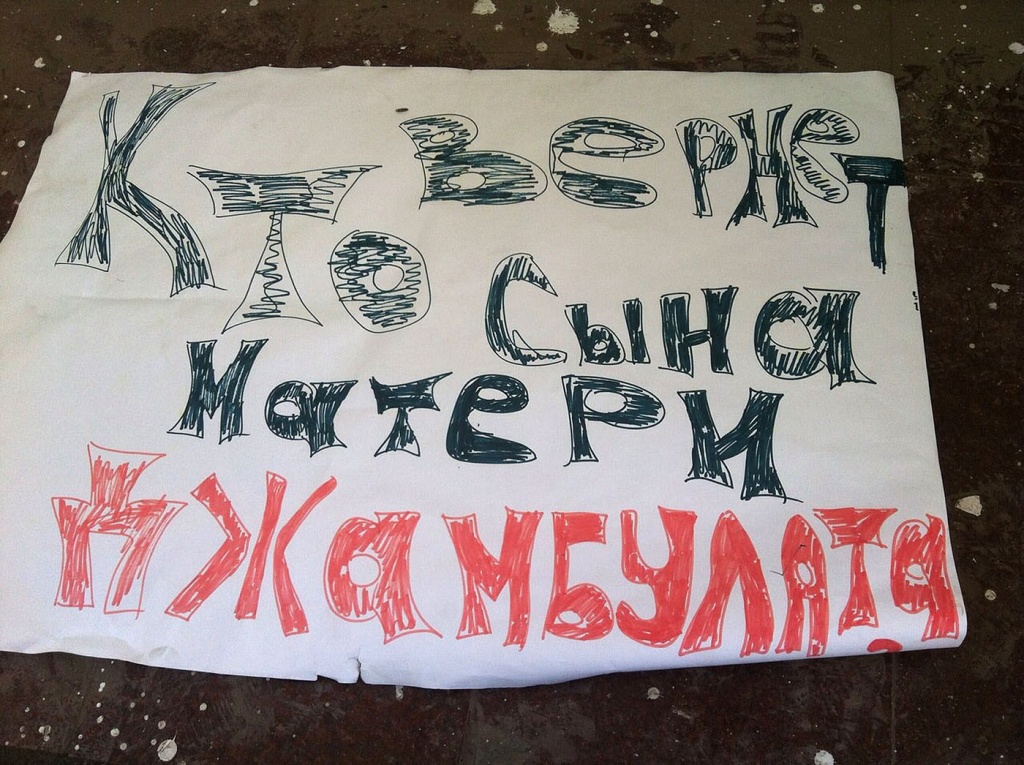 Кто вернет
сына
матери
Джамбулата?